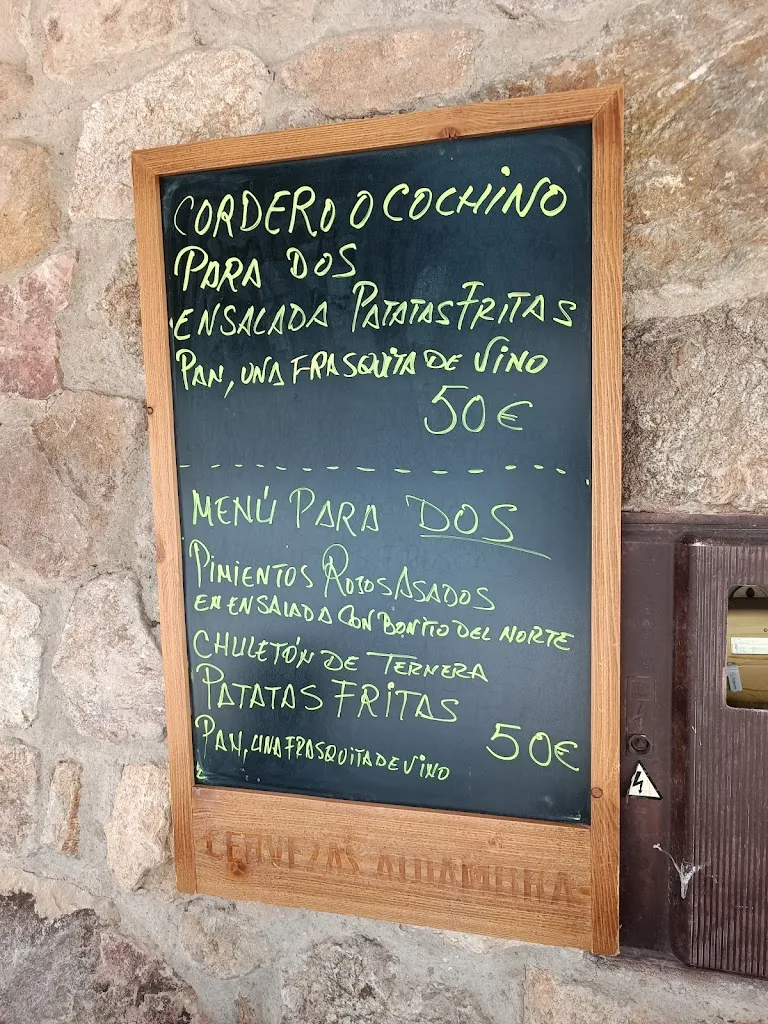 CORDERO O COCHINO
PARA DOS
ENSALADA PATATAS FRITAS
PAN, UNA FRASQUITA DE VINO
50€
MENÚ PARA DOS
PIMIENTOS ROJOS ASADOS
EN ENSALADA CON BONITO DEL NORTE
CHULETÓN DE TERNERA
PATATAS FRITAS
50€
PAN, UNA FRASQUITA DE VINO
CERVEZAS ALHAMBRA